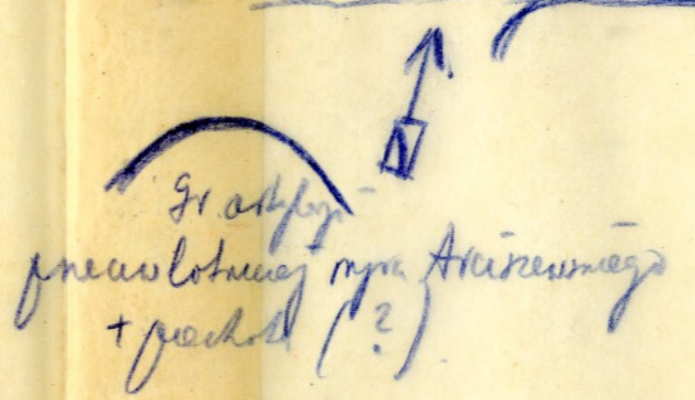 Gr. artylerii
przeciwlotniczej mjra Arciszewskiego
+ piechota (?)